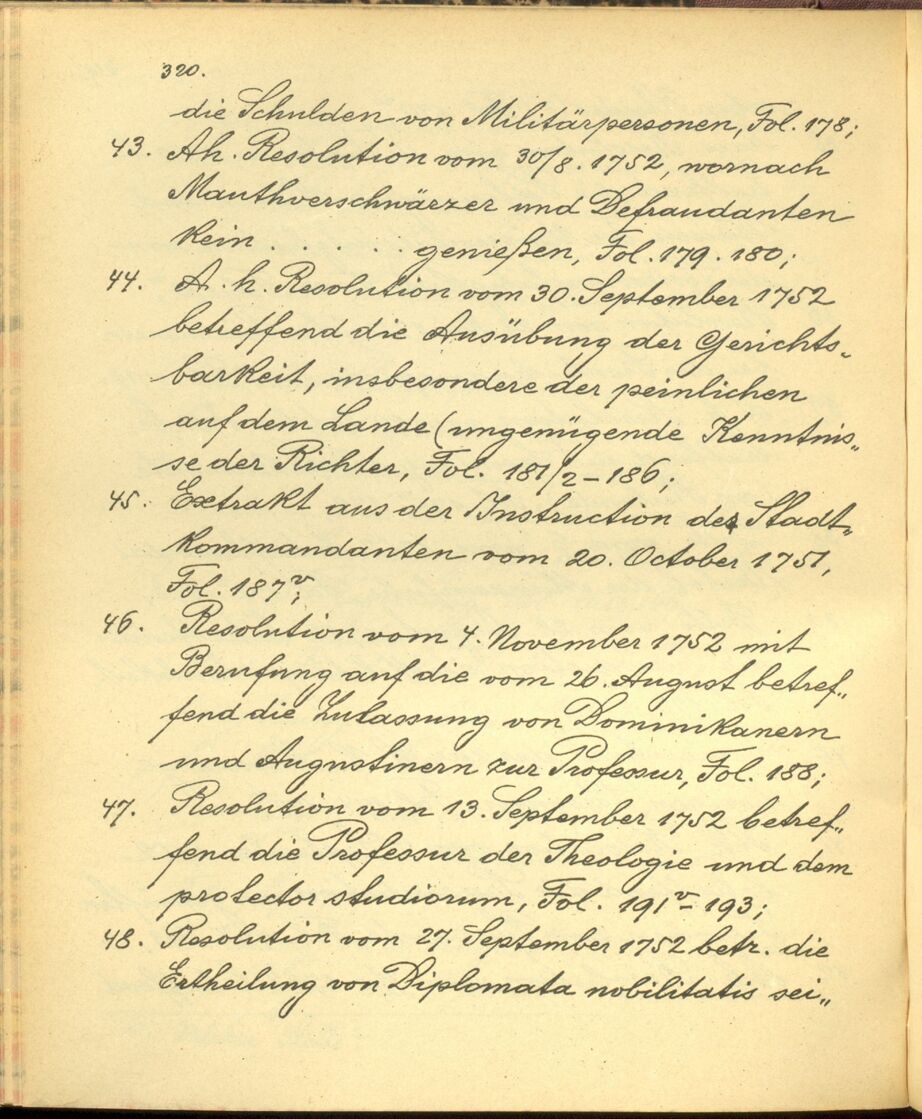 320.
die Schulden von Militärpersonen, Fol. 178;
43. Ah. Resolution vom 30/8. 1752, wornach
Mauthverschwärzer und Defraudanten
kein . . . . . . genießen, Fol. 179. 180;
44. A. h. Resolution vom 30. September 1752
betreffend die Ausübung der Gerichts„
barkeit, insbesondere der peinlichen
auf dem Lande (ungenügende Kenntnis„
se der Richter, Fol. 181/2 – 186;
45. Extrakt aus der Instruction der Stadt„
kommandanten vom 20. October 1751,
Fol. 187v;
46. Resolution vom 4. November 1752 mit
Berufung auf die vom 26. August betref„
fend die Zulassung von Dominikanern
und Augustinern zur Professur, Fol. 188;
47. Resolution vom 13. September 1752 betref„
fend die Professur der Theologie und dem
protector studiorum, Fol. 191v – 193;
48. Resolution vom 27. September 1752 betr. die
Ertheilung von Diplomata nobilitatis sei„